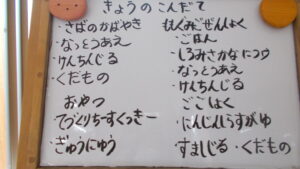 きょうのこんだて
・さばのかばやき
・なっとうあえ
・けんちんじる
・くだもの
おやつ
・てづくりちーずくっきー
・ぎゅうにゅう
もぐもぐぜんしょく
・ごはん
・しろみさかなにつけ
・なっとうあえ
・けんちんじる
ごごしょく
・にんじんしらすがゆ
・すましじる・くだもの